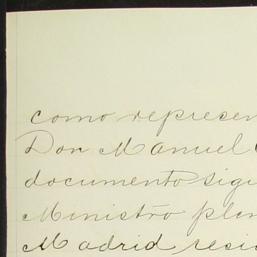 como represen
Don Manuel
documento sigu
Ministro plen
Madrid resid